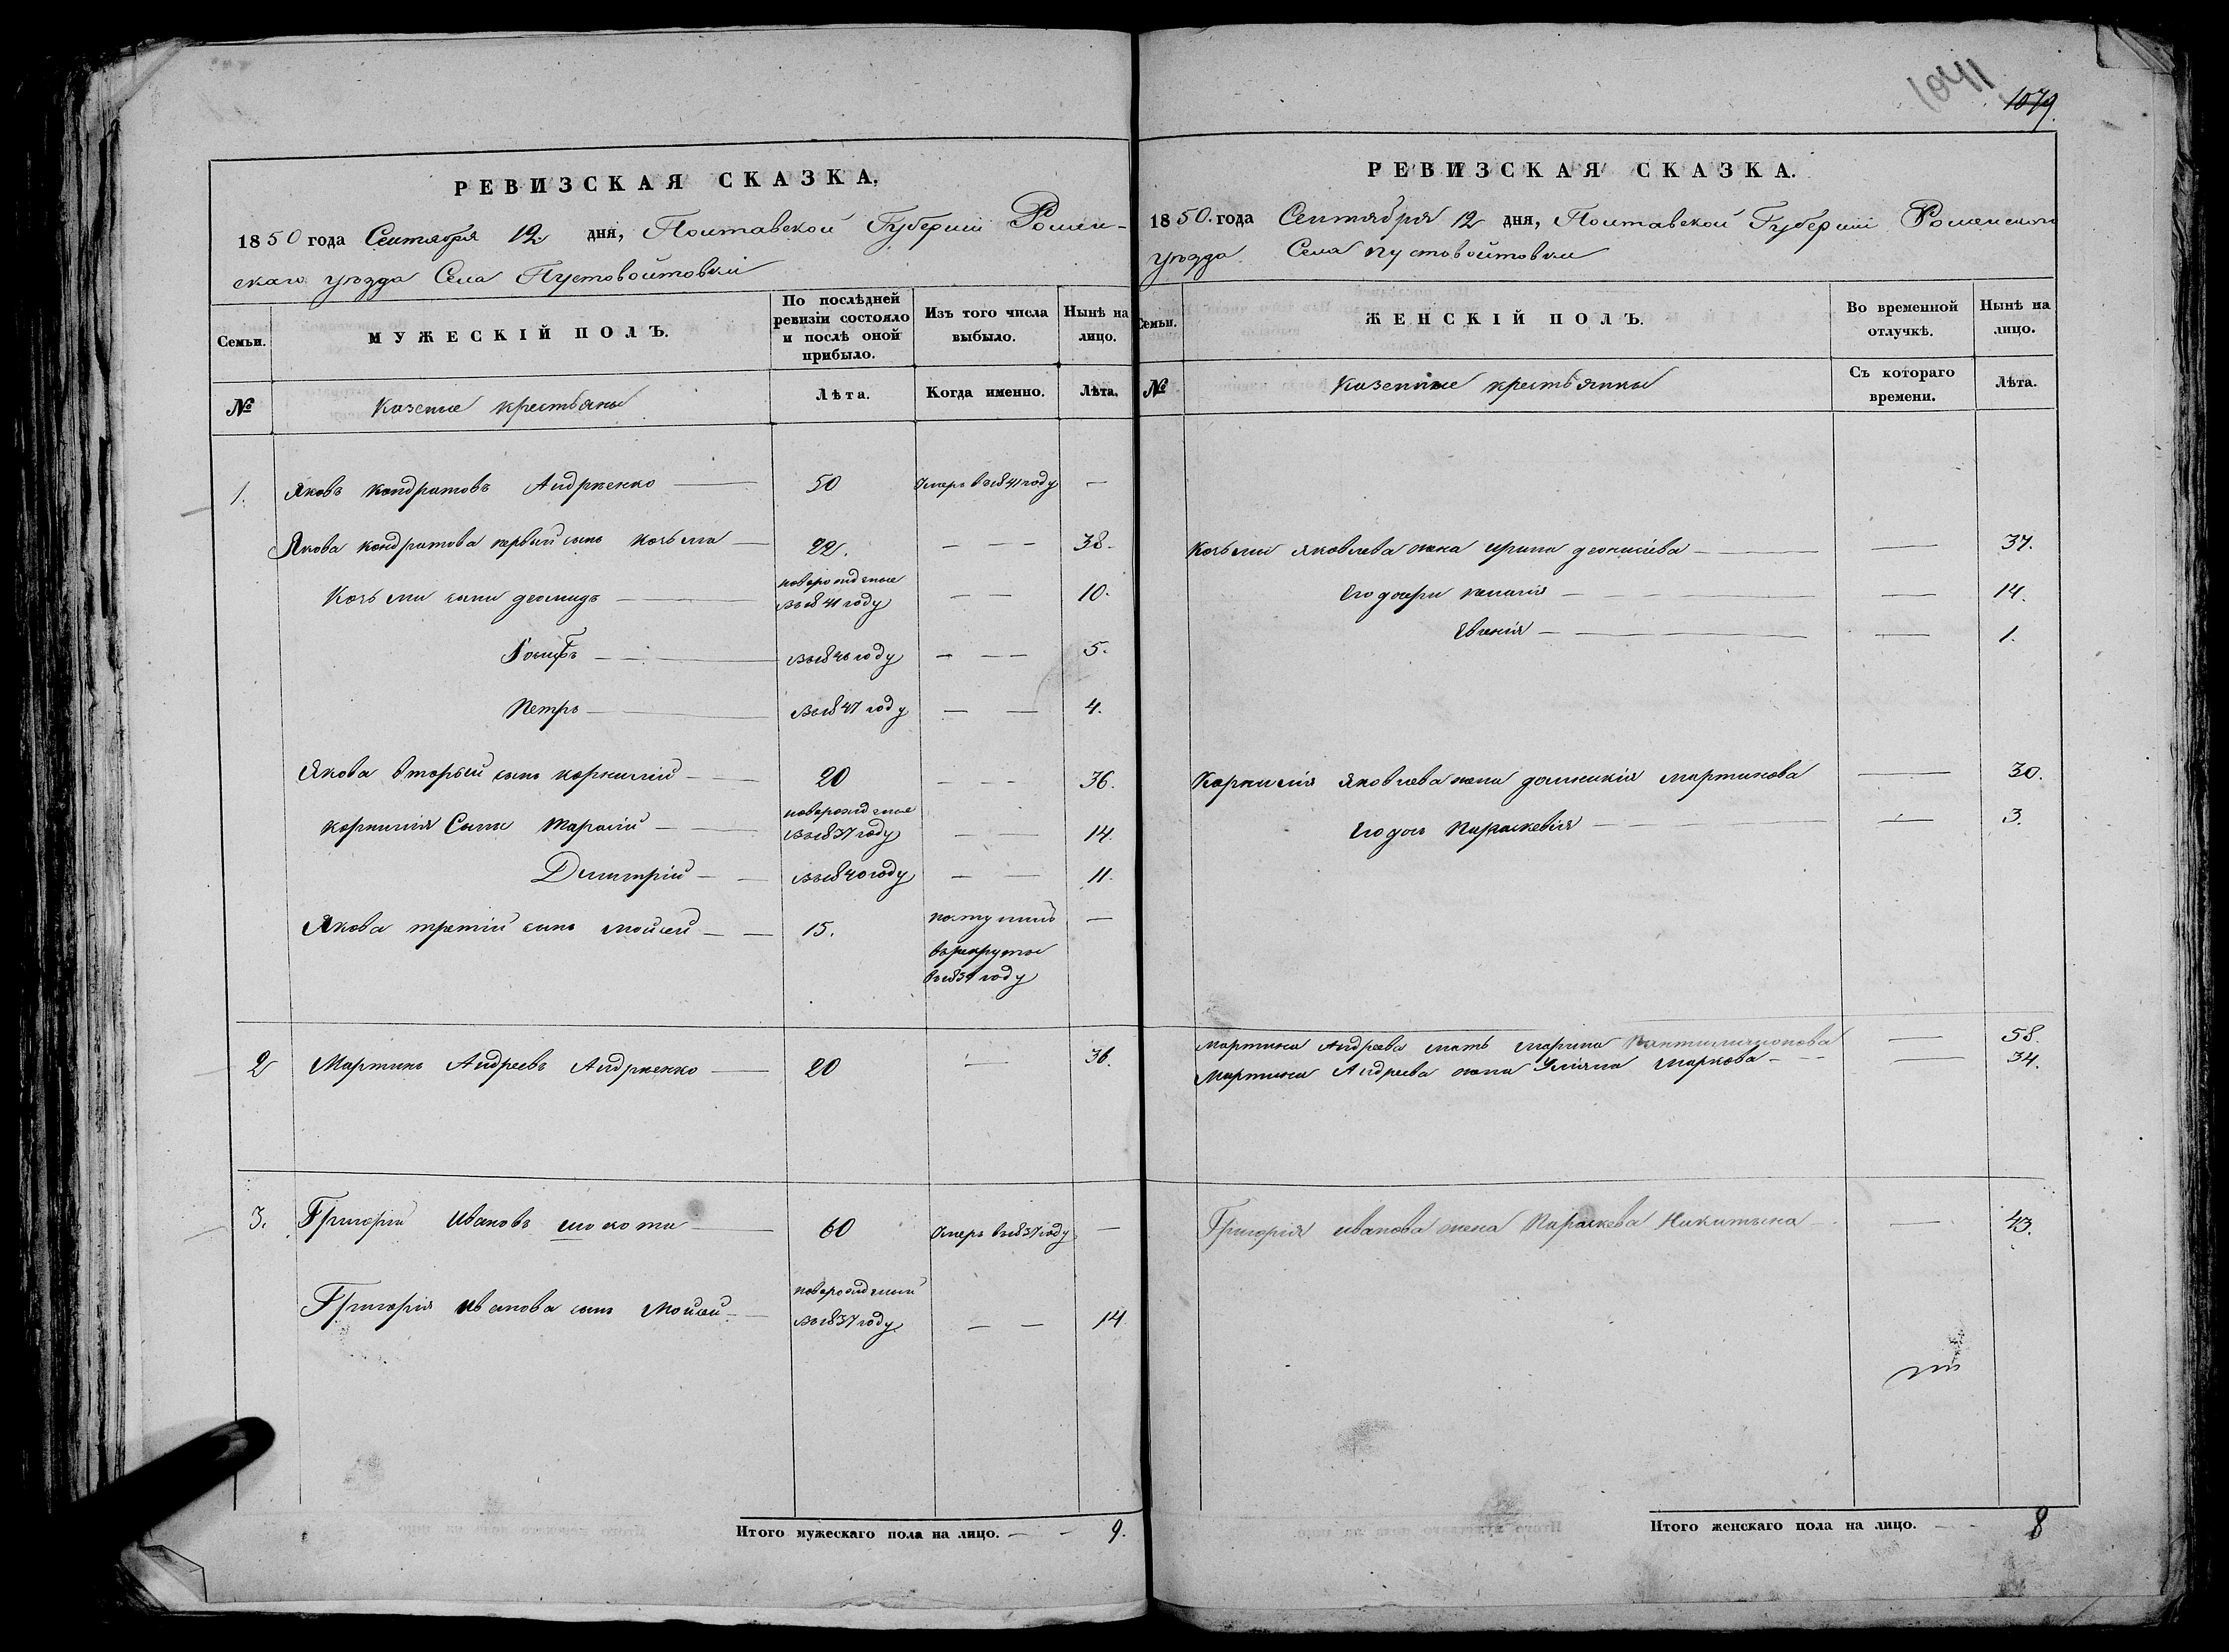 1041
1079.
РЕВИЗСКАЯ СКАЗКА.
1850 года Сентября 12 дня, Полтавской Губерніи Ромен-
скаго уѣзда Села Пустовойтовки
Семьи.
МУЖЕСКІЙ ПОЛЪ.
По послѣдней ревизіи состояло и послѣ оной прибыло.
Изъ того числа выбыло.
Нынѣ на лицо.
№
Казеные крестьяны
Лѣта.
Когда именно.
Лѣта.
1. Яковъ Кондратовъ Андріенко — 50 Умеръ въ 1841 году —
Якова Кондратова первый сынъ Козьма — 22. — — — 38.
новорожденые
Козьми сыни Деомидъ — въ 1841 году — — 10.
Іосифъ — въ 1846 году — — 5.
Петръ — въ 1847 году — — 4.
Якова вторый сынъ Корнилій — 20 — — — 36.
новорожденые
Корнилія Сыни Тарасій — въ 1837 году — 14.
Димитрій — — въ 1840 году — — 11.
Якова третій сынъ Мойсей — — 15. поступилъ —
въ рекруты
въ 1834 году
2 Мартинъ Андреевъ Андріенко — 20 — 36.
3. Григорій Ивановъ — 60 Умеръ въ 1837 году —
новорожденый
Григорія Иванова сынъ Мойсей — въ 1837 году — — 14
Итого мужескаго пола на лицо. — - 9.
РЕВИЗСКАЯ СКАЗКА.
1850. года Сентября 12 дня, Полтавской Губерніи Роменского
уѣзда Села Пустовойтовки
Семьи.
ЖЕНСКІЙ ПОЛЪ.
Во временной отлучкѣ.
Нынѣ на лицо.
№
Казенные крестьянки
Съ котораго времени.
Лѣта.
Козьми Яковлева жена Ирина Деонисіева — — 37.
Его дочери Пелагія — — 14.
Евгенія — — 1.
Корнилія Яковлева жена Домникія Мартинова — 30.
Его дочь Параскевія — — 3.
Мартина Андреева мать Марина Пантилимонова — 58.
Мартина Андреева жена Уліяна Маркова — — 34.
Григорія Иванова жена Параскева Никитина — — 43.
Итого женскаго пола на лицо. — - 8